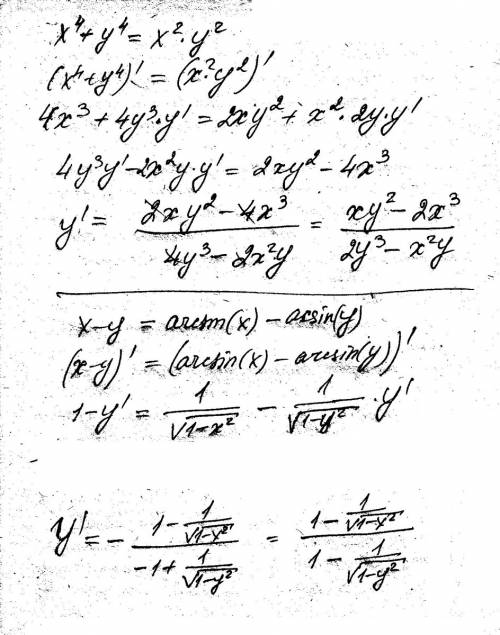 x⁴+y⁴ = x²·y²
(x⁴+y⁴)' = (x²y²)'
4x³ + 4y³·y' = 2xy² + x²·2y·y'
4y³y' - 2x²y·y' = 2xy² - 4x³
y' = (2xy² - 4x³)/(4y³ - 2x²y) = (xy² - 2x³)/(2y³ - x²y)
x-y = arcsin(x) - arcsin(y)
(x-y)' = (arcsin(x) - arcsin(y))'
1-y' = 1/√(1-x²) - 1/√(1-y²) · y'
y' = - (1 - 1/√(1-x²))/(-1 + 1/√(1-y²)) = (1 - 1/√(1-x²))/(1 - 1/√(1-y²))